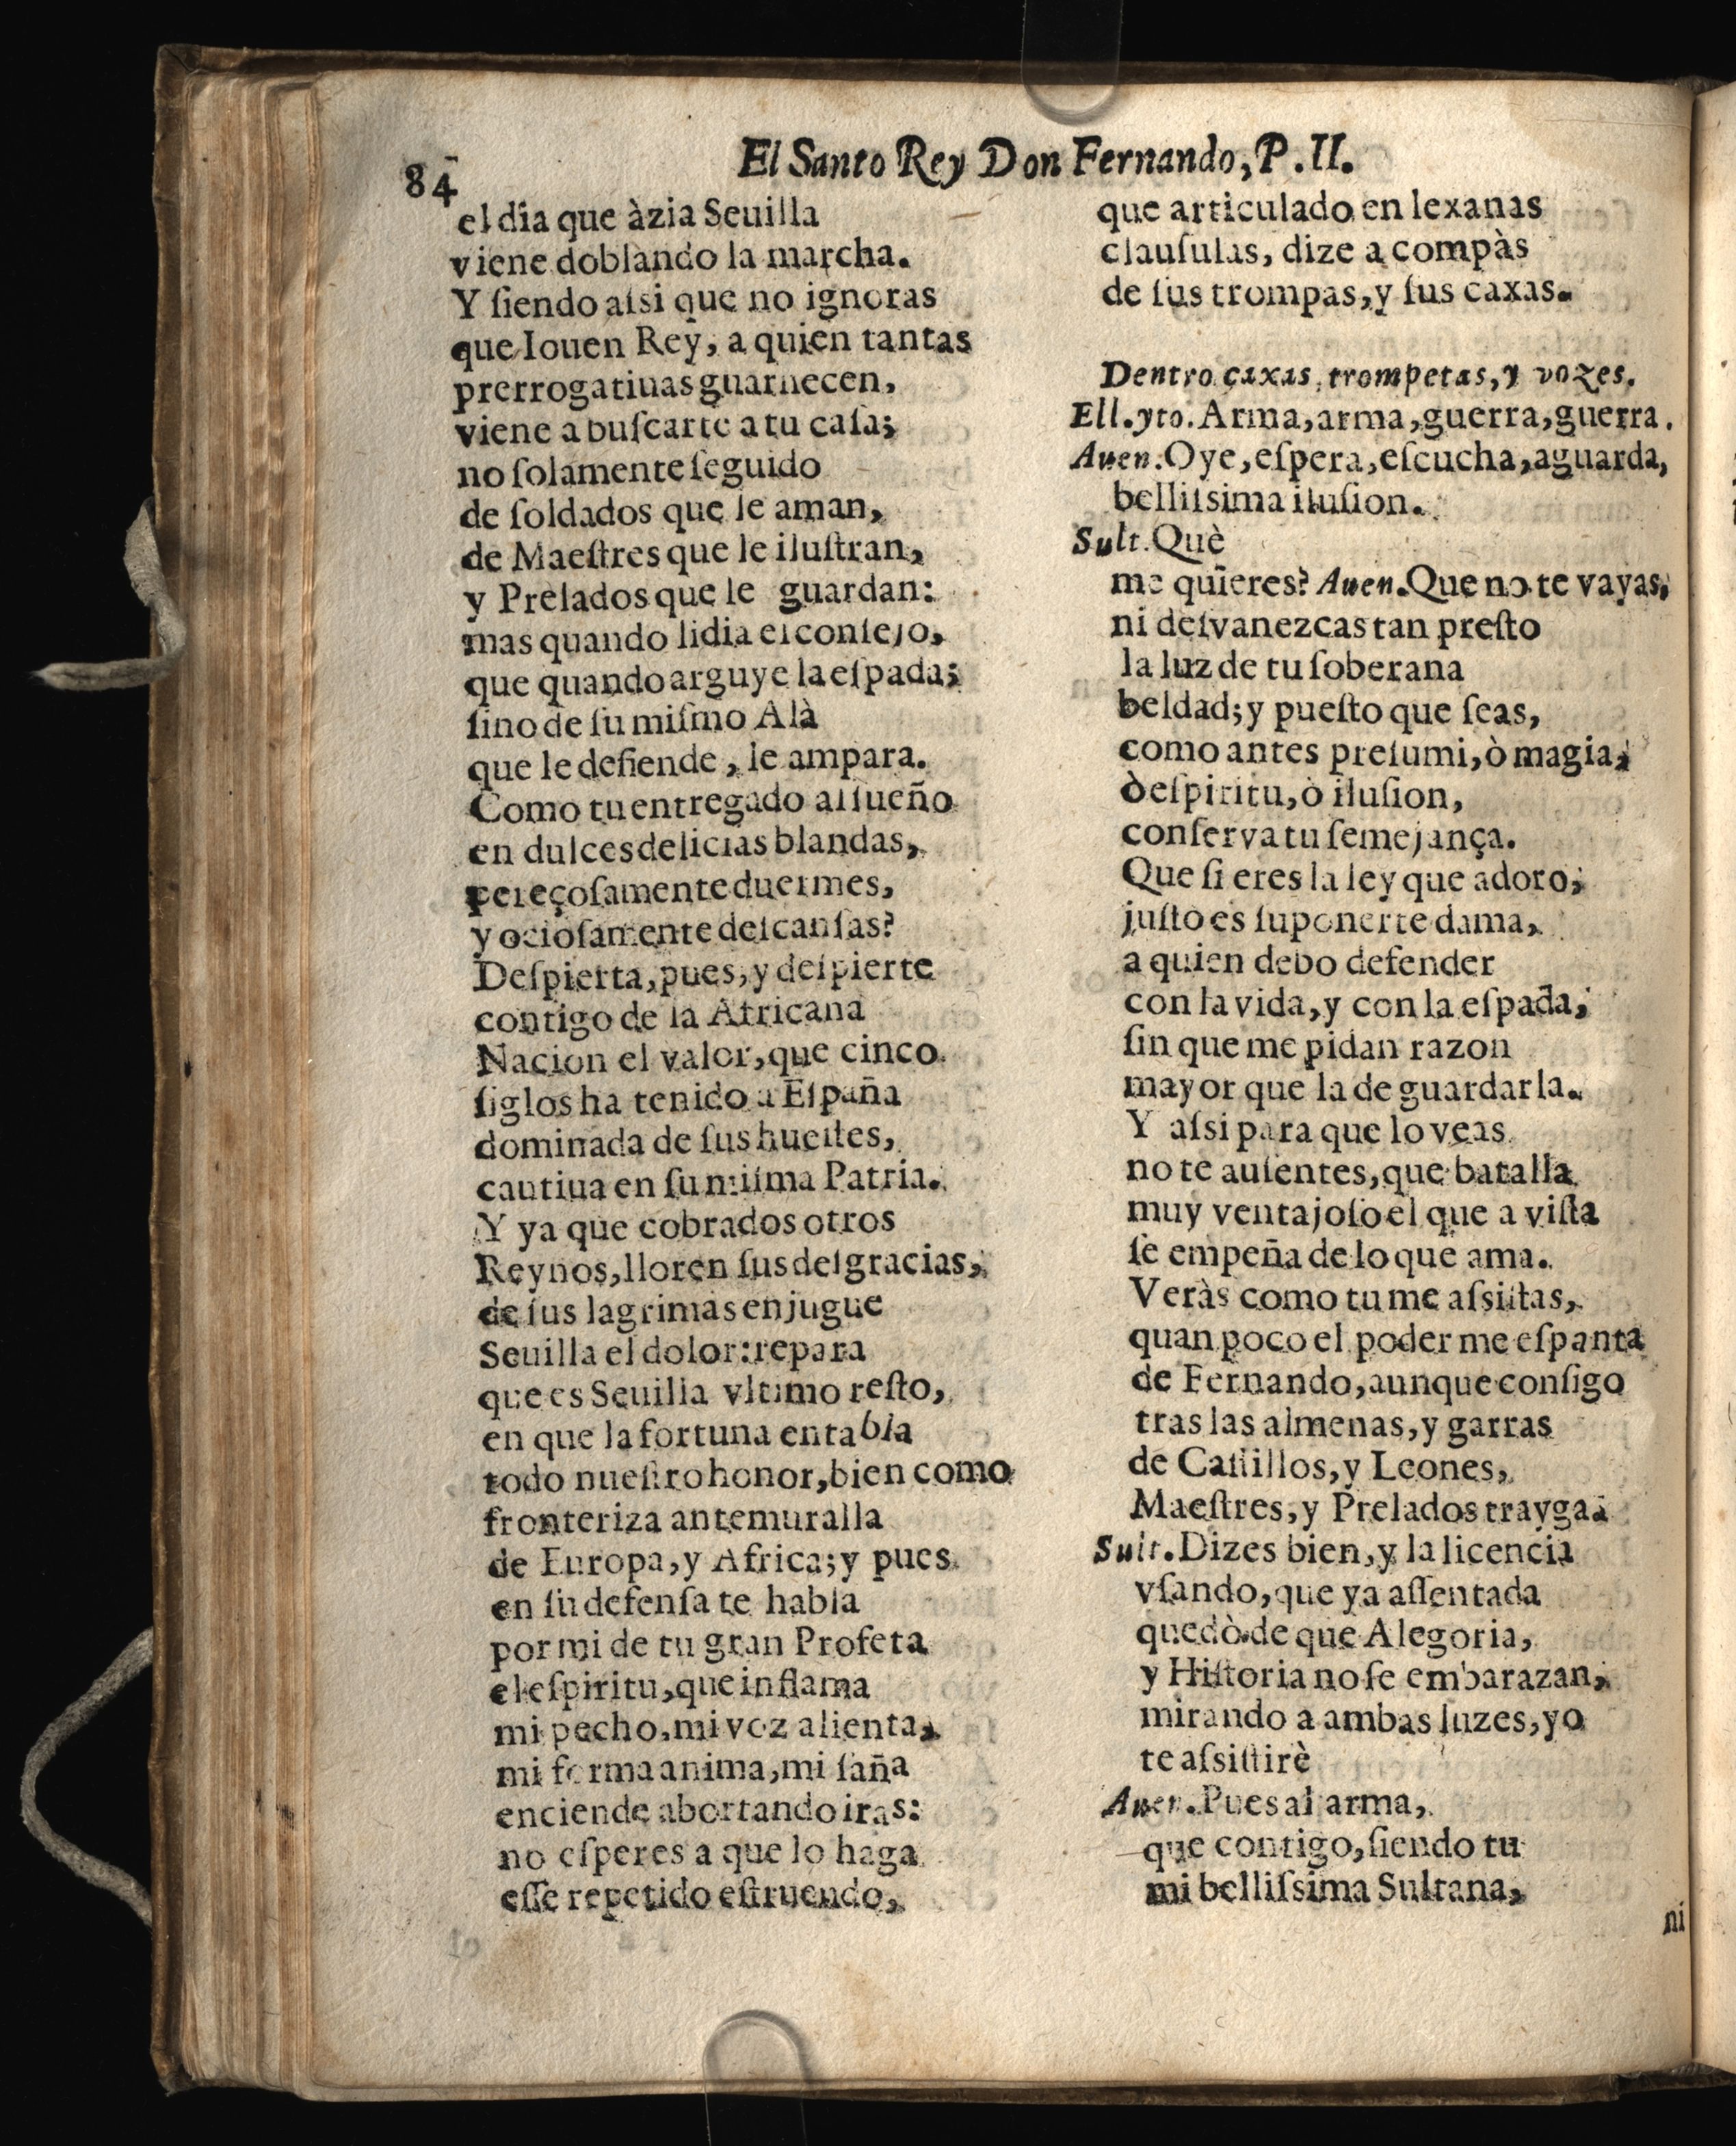 84
El Santo Rey Don Fernando, P. II.
el dia que àzia Seuilla
viene doblando la marcha.
Y ſiendo aſsi que no ignoras
que Iouen Rey, a quien tantas
prerrogatiuas guarnecen,
viene a buſcarte a tu caſa;
no ſolamente ſeguido
de ſoldados que le aman,
de Maeſtres que le iluſtran,
y Prelados que le guardan:
mas quando lidia el conſejo,
que quando arguye la eſpada;
ſino de ſu miſmo Alà
que le defiende, le ampara.
Como tu entregado al ſueño
en dulces delicias blandas,
pereçoſamente duermes,
y ocioſamente deſcanſas?
Deſpierta, pues, y deſpierte
contigo de la Africana
Nacion el valor, que cinco
ſiglos ha tenido a Eſpaña
dominada de ſus hueſtes,
cautiua en ſu miſma Patria.
Y ya que cobrados otros
Reynos, lloren ſus deſgracias,
de ſus lagrimas enjugue
Seuilla el dolor: repara
que es Seuilla vltimo reſto,
en que la fortuna entabla
todo nueſtro honor, bien como
fronteriza antemuralla
de Europa, y Africa; y pues
en ſu defenſa te habla
por mi de tu gran Profeta
el eſpiritu, que inflama
mi pecho, mi voz alienta,
mi forma anima, mi ſaña
enciende abortando iras:
no eſperes a que lo haga
eſſe repetido eſtruendo,
que articulado en lexanas
clauſulas, dize a compàs
de ſus trompas, y ſus caxas.
Dentro caxas, trompetas, y vozes.
Ell. yto. Arma, arma, guerra, guerra.
Auen. Oye, eſpera, eſcucha, aguarda,
belliſsima iluſion.
Sult. Què
me quieres? Auen. Que no te vayas,
ni deſvanezcas tan preſto
la luz de tu ſoberana
beldad; y pueſto que ſeas,
como antes preſumi, ò magia,
ò eſpiritu, ò iluſion,
conſerva tu ſemejança.
Que ſi eres la ley que adoro,
juſto es ſuponerte dama,
a quien debo defender
con la vida, y con la eſpada,
ſin que me pidan razon
mayor que la de guardarla.
Y aſsi para que lo veas
no te auſentes, que batalla
muy ventajoſo el que a viſta
ſe empeña de lo que ama.
Veràs como tu me aſsiſtas,
quan poco el poder me eſpanta
de Fernando, aunque conſigo
tras las almenas, y garras
de Caſtillos, y Leones,
Maeſtres, y Prelados trayga.
Sult. Dizes bien, y la licencia
vſando, que ya aſſentada
quedò de que Alegoria,
y Hiſtoria no ſe embarazan,
mirando a ambas luzes, yo
te aſsiſtirè
Auen. Pues al arma,
que contigo, ſiendo tu
mi belliſsima Sultana,
ni